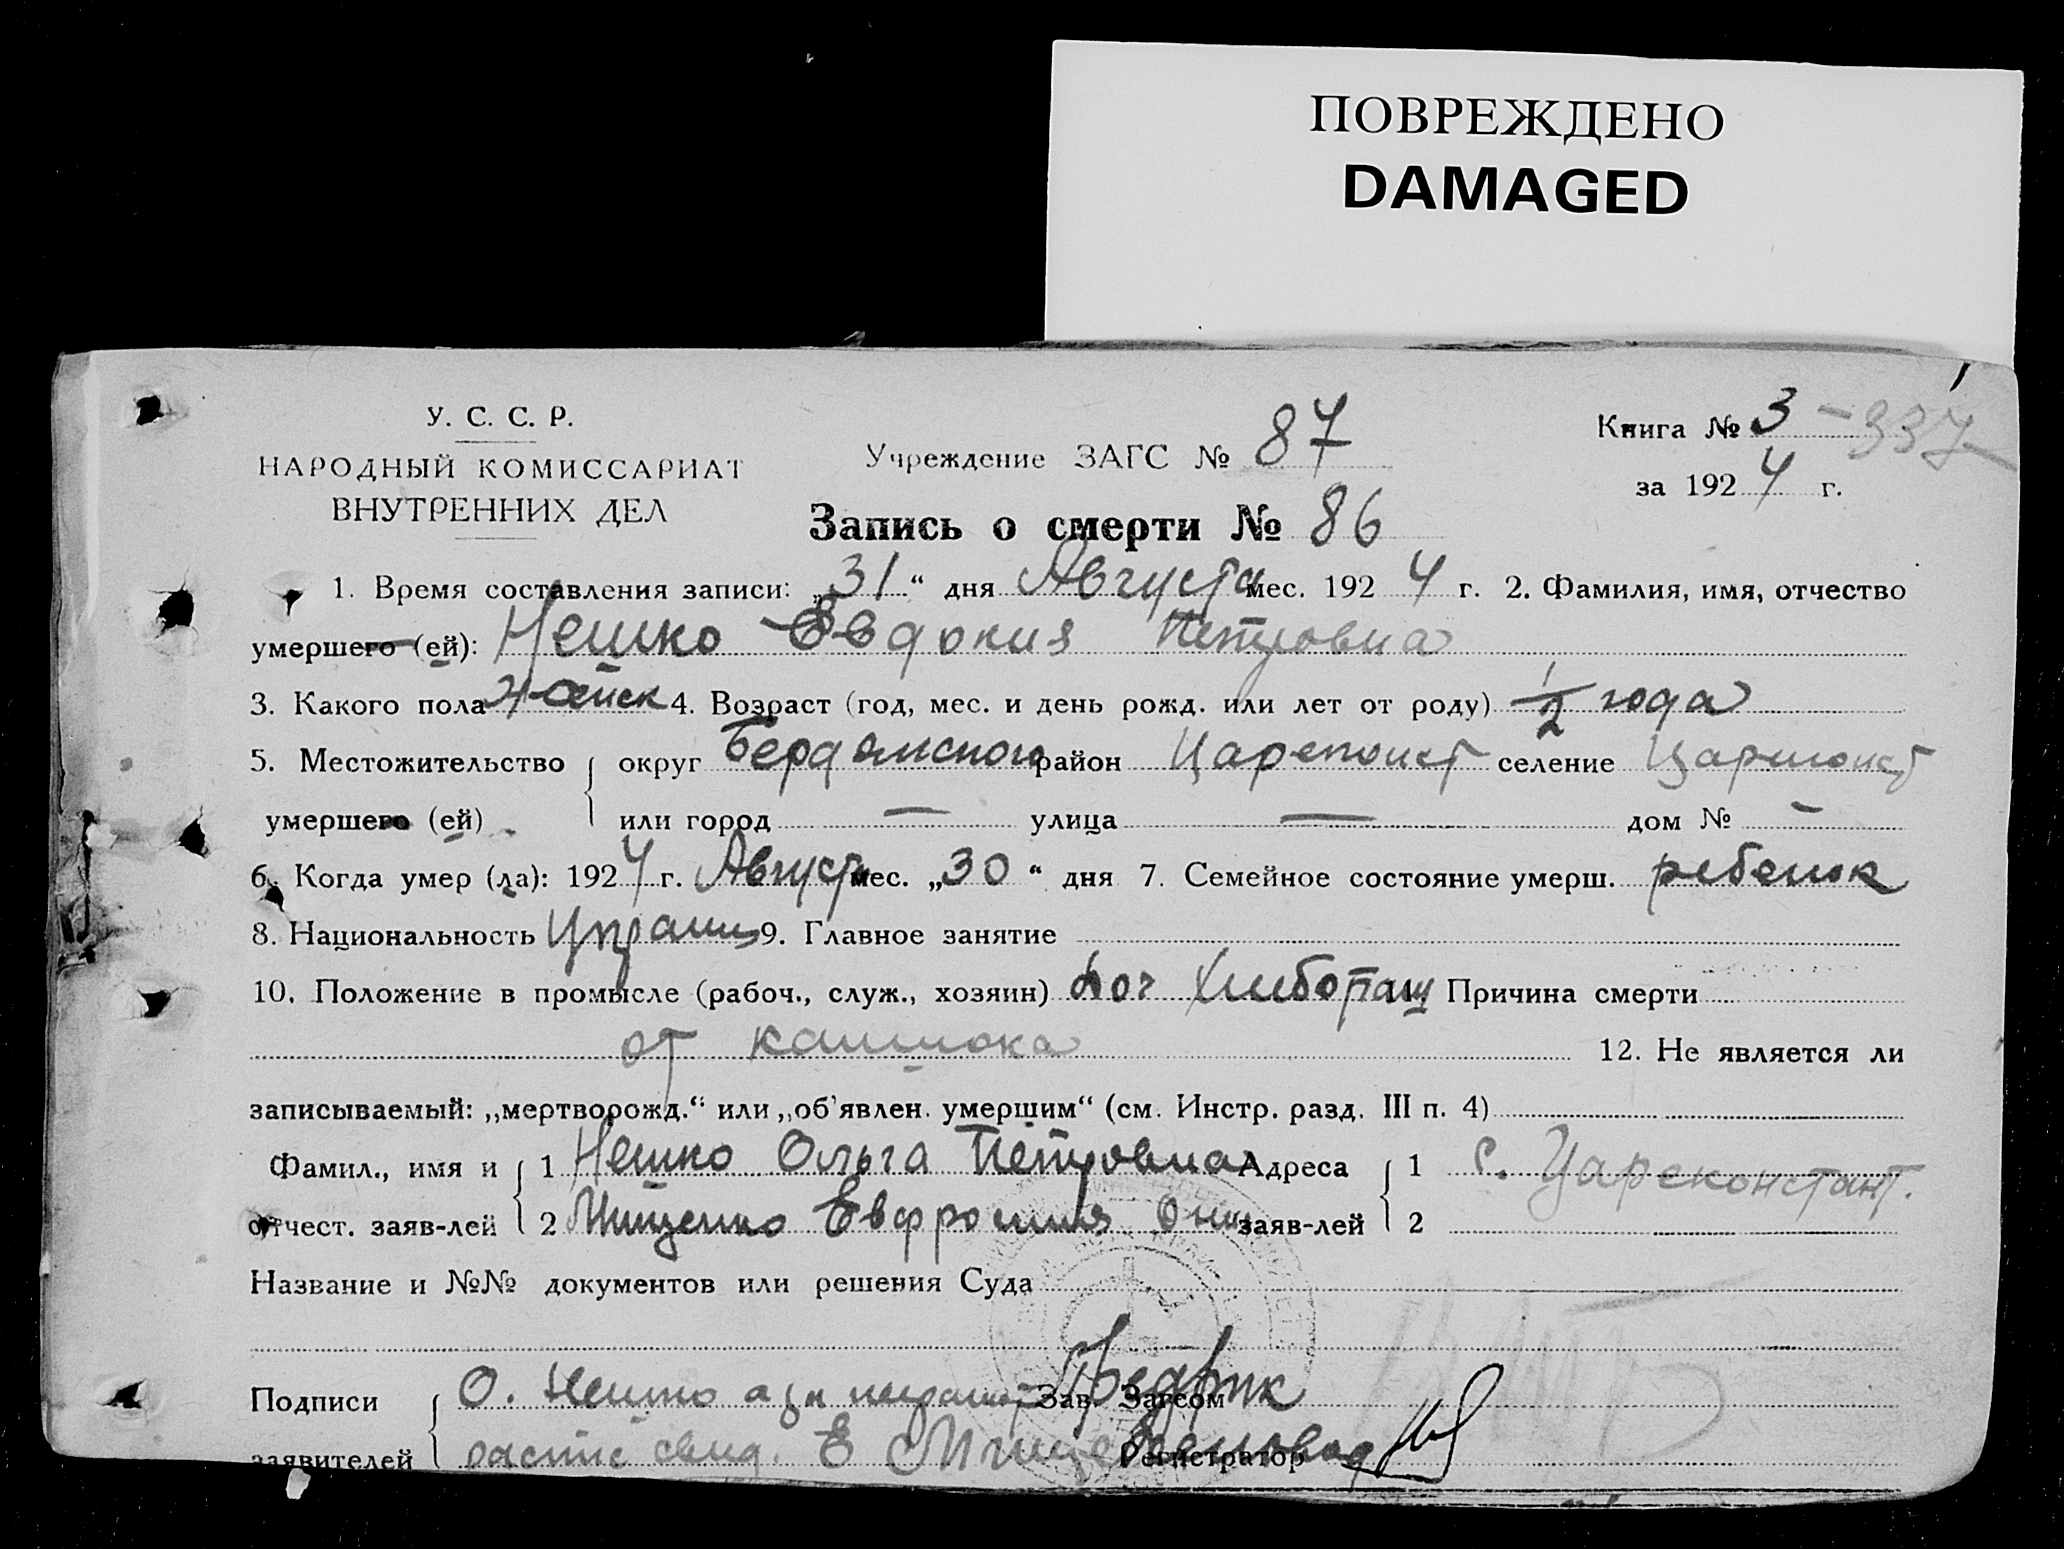 ПОВРЕЖДЕНО
DAMAGED
У. С. С. Р.
НАРОДНЫЙ КОМИССАРИАТ
ВНУТРЕННИХ ДЕЛ
Учреждение ЗАГС № 87
Книга № 3 - 337
за 1924 г.
Запись о смерти № 86
1. Время составления записи: „31“ дня Августа мес. 1924 г. 2. Фамилия, имя, отчество
умершего (ей): Нешко Евдокия Петровна
3. Какого пола женск 4. Возраст (год, мес. и день рожд. или лет от роду) 1/2 года
5. Местожительство округ Бердянского район Цареконст селение Царконст
умершего (ей) или город — улица — дом № —
6. Когда умер (ла): 1924 г. Августа мес. „30“ дня 7. Семейное состояние умерш. ребенок
8. Национальность Украин 9. Главное занятие
10. Положение в промысле (рабоч., служ., хозяин) доч Хлибопаш 11. Причина смерти
от кашлюка 12. Не является ли
записываемый: „мертворожд.“ или „об'явлен. умершим“ (см. Инстр. разд. III п. 4)
Фамил., имя и 1 Нешко Ольга Петровна Адреса 1 с. Цареконстант.
отчест. заяв-лей 2 Мищенко Евфросиния заяв-лей 2
Название и №№ документов или решения Суда
Подписи О. Нешко а за неграмот Зав. Загсом
заявителей свид. Е Мище Регистратор